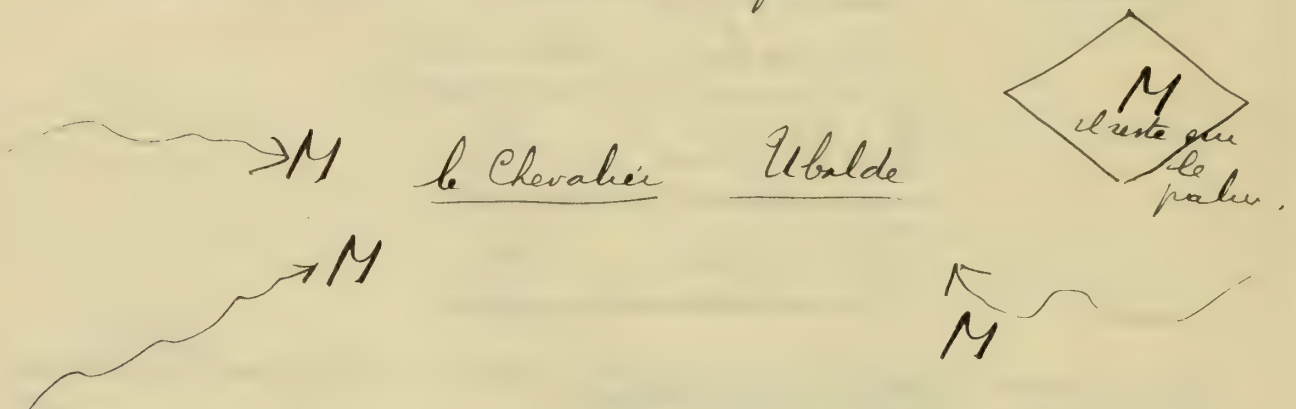 M
M le Chevalier Ubalde
il reste sur
le
palier.
M
M